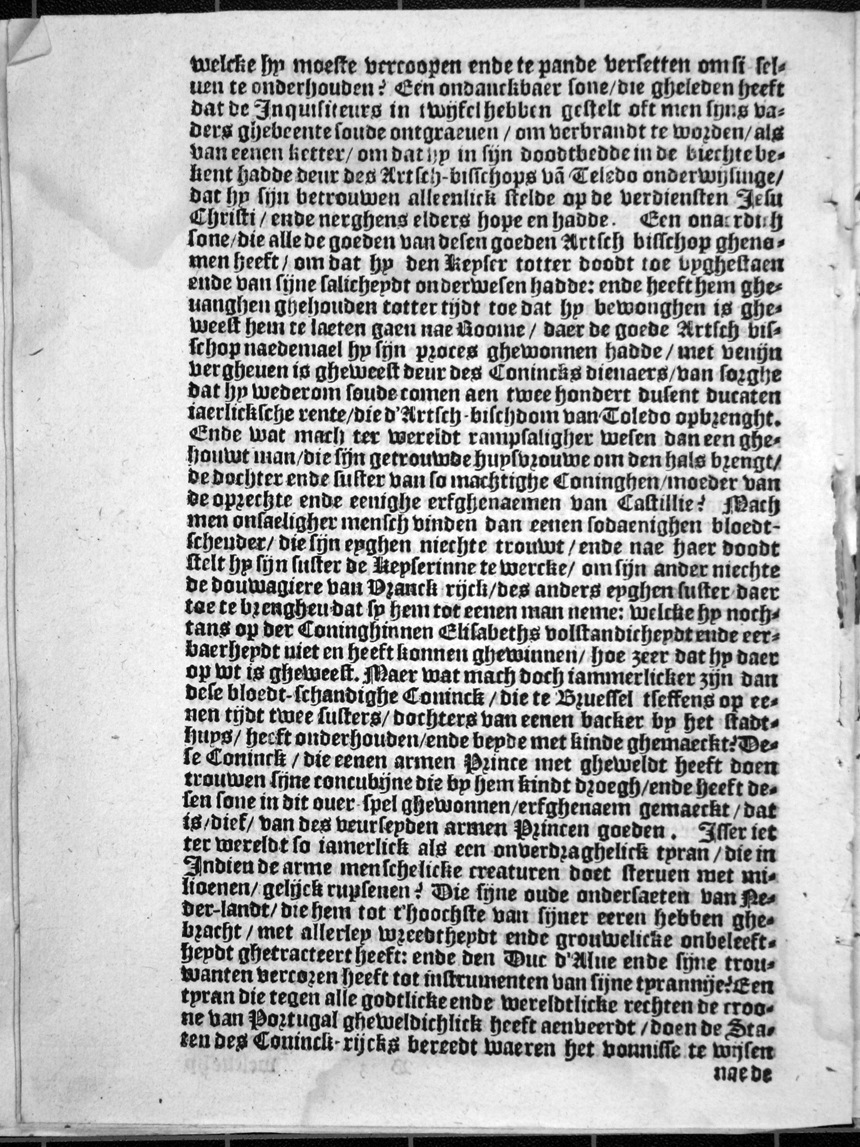 welcke hy moeste vercoopen ende te pande versetten om si sel-
uen te onderhouden? Een ondanckbaer sone/die gheleden heeft
dat de Inquisiteurs in twijfel hebben gestelt oft men sijns va-
ders ghebeente soude ontgraeuen / om verbrandt te worden/als
van eenen ketter/ om dat hy in sijn doodtbedde in de biechte be-
kent hadde deur des Artsch-bisschops vā Toledo onderwijsinge/
dat hy sijn betrouwen alleenlick stelde op de verdiensten Jesu
Christi/ ende nerghens elders hope en hadde. Een onaerdich
sone/die alle de goeden van desen goeden Artsch bisschop gheno-
men heeft/ om dat hy den Keyser totter doodt toe byghestaen
ende van sijne salicheydt onderwesen hadde: ende heeft hem ghe-
uanghen ghehouden totter tijdt toe dat hy bewonghen is ghe-
weest hem te laeten gaen nae Roome/ daer de goede Artsch bis-
schop naedemael hy sijn proces ghewonnen hadde/ met venijn
vergheuen is gheweest deur des Conincks dienaers/van sorghe
dat hy wederom soude comen aen twee hondert dusent ducaten
iaerlicksche rente/die d'Artsch-bischdom van Toledo opbrenght.
Ende wat mach ter wereldt rampsaligher wesen dan een ghe-
houwt man/die sijn getrouwde huysvrouwe om den hals brengt/
de dochter ende suster van so machtighe Coninghen/moeder van
de oprechte ende eenighe erfghenaemen van Castillie? Mach
men onsaeligher mensch vinden dan eenen sodaenighen bloedt-
schender/ die sijn eyghen niechte trouwt / ende nae haer doodt
stelt hy sijn suster de Keyserinne te wercke/ om sijn ander niechte
de douwagiere van Vranck rijck/des anders eyghen suster daer
toe te brenghen dat sy hem tot eenen man neme: welcke hy noch-
tans op der Coninghinnen Elisabeths volstandicheydt ende eer-
baerheydt niet en heeft konnen ghewinnen/ hoe zeer dat hy daer
op wt is gheweest. Maer wat mach doch iammerlicker zijn dan
dese bloedt-schandighe Coninck / die te Bruessel tseffens op ee-
nen tijdt twee susters/ dochters van eenen backer by het stadt-
huys/ heeft onderhouden/ende beyde met kinde ghemaeckt? De-
se Coninck / die eenen armen Prince met gheweldt heeft doen
trouwen sijne concubijne die by hem kindt droegh/ende heeft de-
sen sone in dit ouer-spel ghewonnen/erfghenaem gemaeckt / dat
is/dief/ van des veurseyden armen Princen goeden. Isser iet
ter wereldt so iamerlick als een onverdraghelick tyran / die in
Indien de arme menschelicke creaturen doet steruen met mi-
lioenen/ gelijck rupsenen? Die sijne oude ondersaeten van Ne-
der-landt/ die hem tot t'hoochste van sijner eeren hebben ghe-
bracht / met allerley wreedtheydt ende grouwelicke onbeleeft-
heydt ghetracteert heeft: ende den Duc d'Alue ende sijne trou-
wanten vercozen heeft tot instrumenten van sijne tyrannije? Een
tyran die tegen alle godtlicke ende wereldtlicke rechten de croo-
ne van Portugal gheweldichlick heeft aenveerdt / doen de Sta-
ten des Coninck-rijcks bereedt waeren het vonnisse te wijsen
nae de